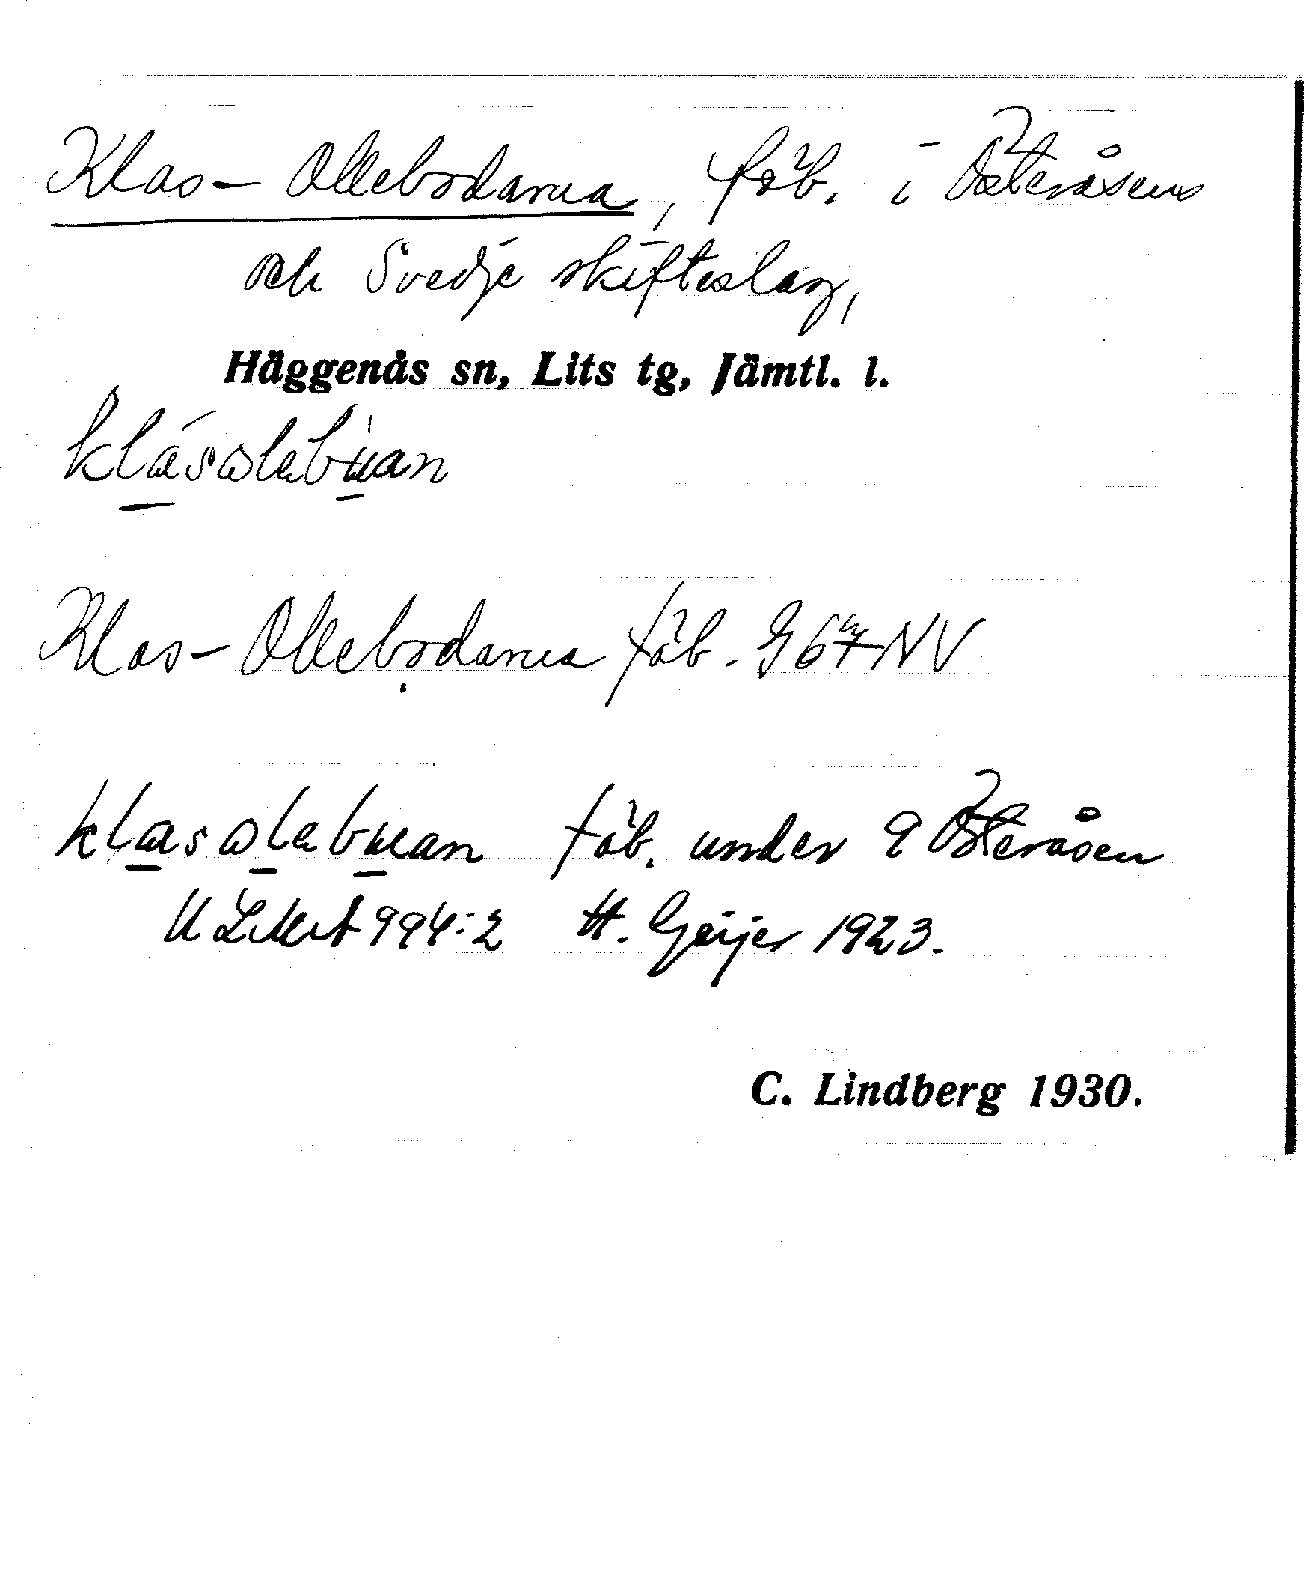 Klas-Ollebodarna, fäb. i Österåsens
och Svedje skifteslag,
Häggenås sn, Lits tg, Jämtl. l.
klásωlebuan
Klas-Ollebodarna fäb. G 67 NV
klasωlebuan fäb. under Österåsen
994:2 H. Geijer 1923.
C. Lindberg 1930.